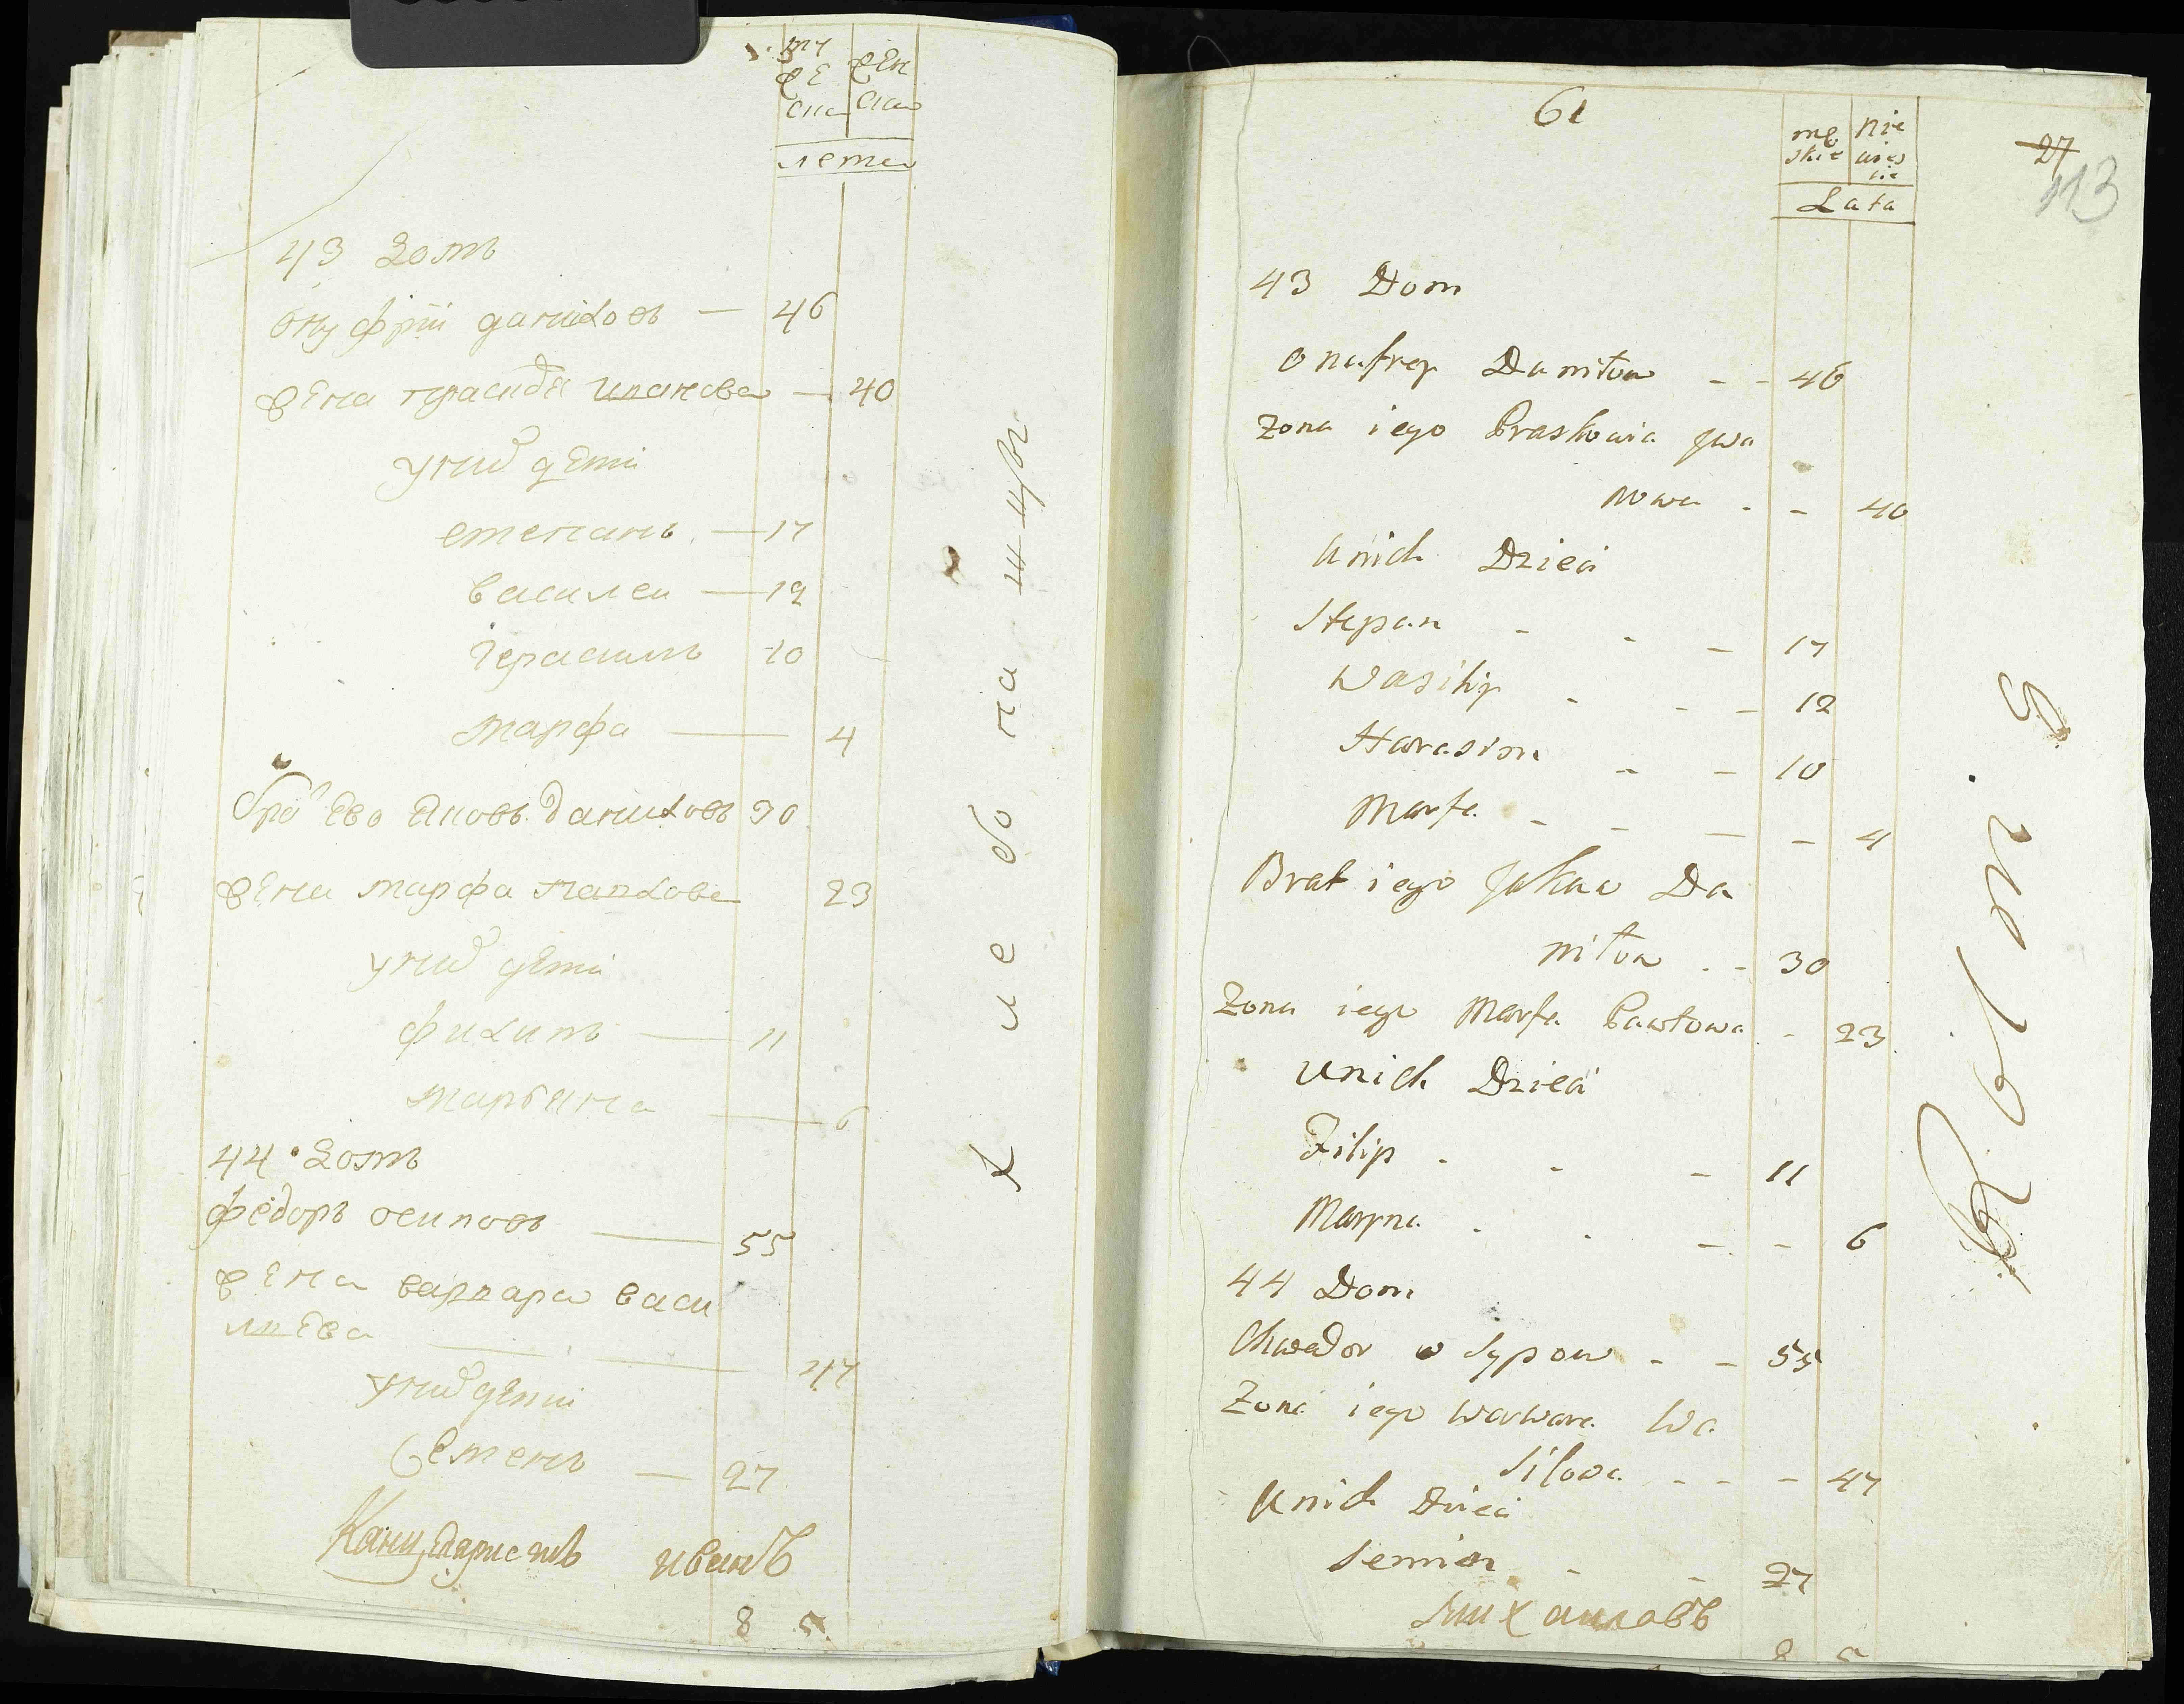 му
же
ска
жен
ска
лета
43 Домъ
Онуфрій даниловъ — 46
жена прасидя ивановва — 40
унихъ дети
степанъ — 17
василеи — 12
герасимъ 10
марфа — 4
бра его яковъ даниловъ 30
жена марфа павлова 23
унихъ дети
филипъ — 11
марьяна — 6
44 Домъ
федоръ осиповъ — 55
жена варвара васи
льева — 47
унихъ дети
семенъ — 27
Канцеляристъ иванъ
8 5
К ле бо па
61
mę
skie
nie
wies
cie
Lata
27
113
43 Dom
Onufrey Daniłow - - 46
Zona iego Praskowia Jwa
nowa - - 40
Unich Dzieci
Stepan - - - 17
Wasiliy - - - 12
Harasim - - 10
Marfa - - - - 4
Brat iego Jakow Da
niłow - - 30
Zona iego Marfa Pawłowa - 23
Unich Dzieci
Filip - - - 11
Maryna - - - - 6
44 Dom
Chwedor Osypow - - 55
Zona iego Warwara Wa
silowa - - - 47
Unich Dzieci
Semion - - 27
Михаиловъ
8 5